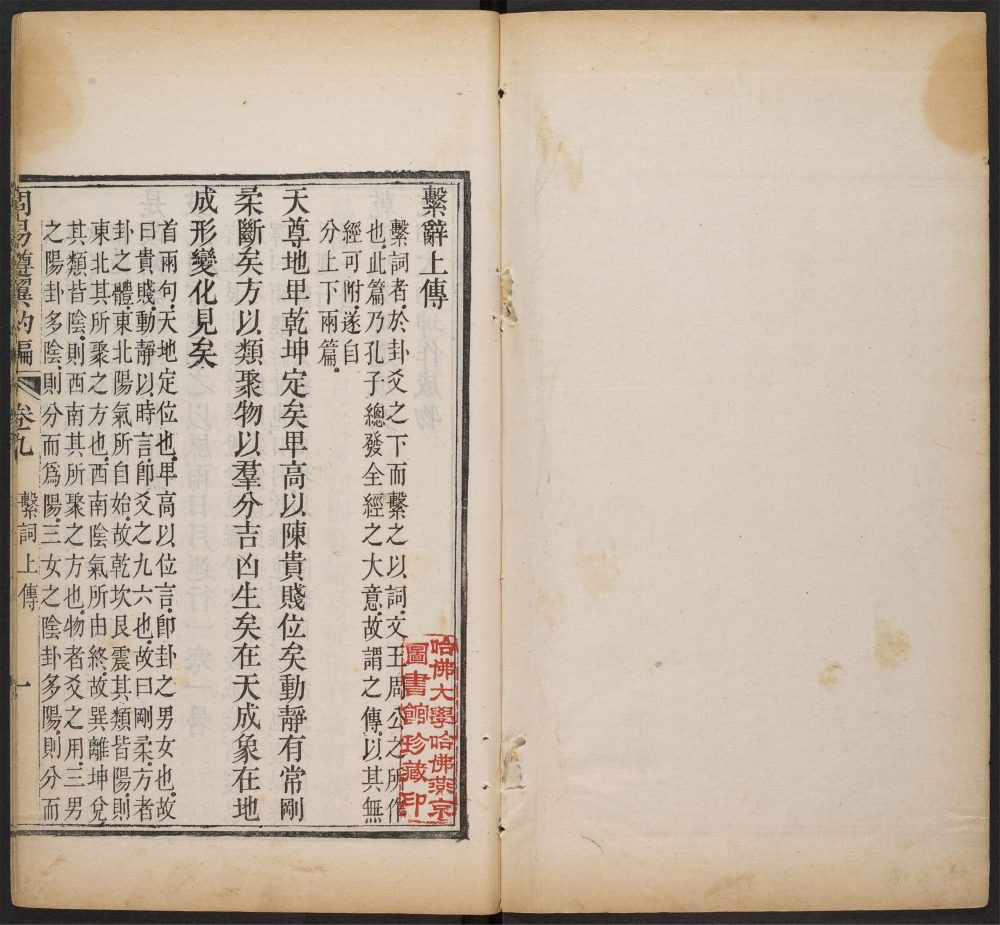 繫辭上傳
繫詞者.於卦爻之下而繫之以詞.文王周公之所作
也.此篇乃孔子總發全經之大意.故謂之傳.以其無
經可附.遂自
分上下兩篇.
天尊地卑乾坤定矣卑高以陳貴賤位矣動靜有常剛
柔斷矣方以類聚物以羣分吉凶生矣在天成象在地
成形變化見矣
首兩句.天地定位也.卑高以位言.卽卦之男女也.故
曰貴賤.動靜以時言.卽爻之九六也.故曰剛柔.方者
卦之體.東北陽氣所自始.故乾坎艮震其類皆陽.則
東北其所聚之方也.西南陰氣所由終.故巽離坤兌
其類皆陰.則西南其所聚之方也.物者爻之用.三男
之陽卦多陰.則分而爲陽.三女之陰卦多陽.則分而
周易遵翼約編 卷九 繫詞上傳 一
哈佛大學哈佛燕京
圖書館珍藏印